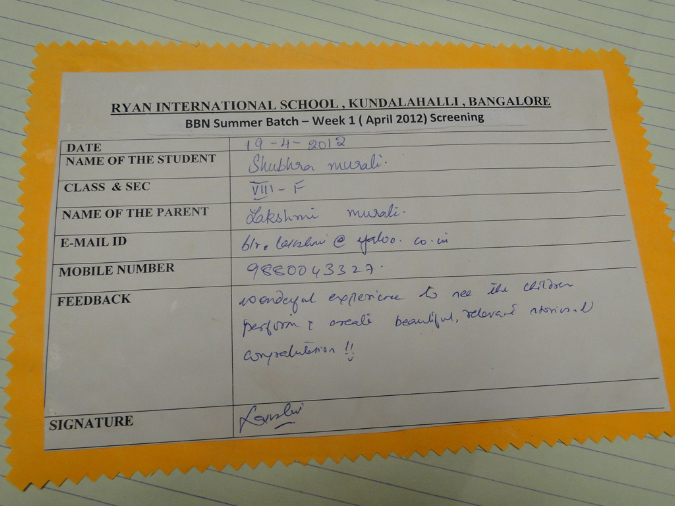 RYAN INTERNATIONAL SCHOOL , KUNDALAHALLI , BANGALORE
BBN Summer Batch – Week 1 ( April 2012) Screening
DATE 19-4-2012
NAME OF THE STUDENT Shubhra murali.
CLASS & SEC VIII - F
NAME OF THE PARENT Lakshmi murali.
E-MAIL ID @ yahoo. co. in
MOBILE NUMBER 9880043327.
FEEDBACK wonderful experience to see the children
perform & create beautiful, relevant
congratulations !!
SIGNATURE